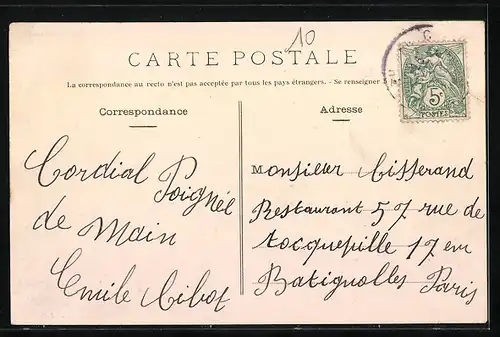 10
CARTE POSTALE
La correspondance au recto n'est pas acceptée par tous les pays étrangers. - Se renseigner à la
Correspondance
Adresse
5c
POSTES
Cordial Poignée
de Main
Emile Cibot
Monsieur Cisserand
Restaurant 57 rue de
tocquepille 17 em
Batignolles Paris